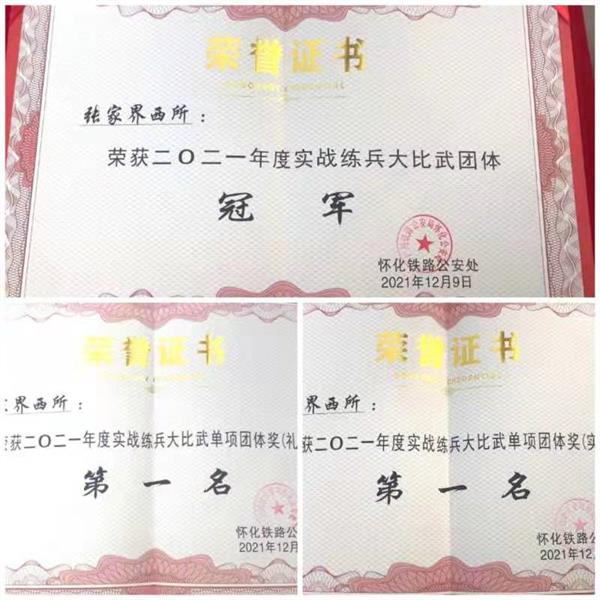 荣誉证书
张家界西所：
荣获二〇二一年度实战练兵大比武团体
冠 军
怀化铁路公安处
2021年12月9日
荣誉证书
界西所：
获二〇二一年度实战练兵大比武单项团体奖(礼
第 一 名
怀化铁路公
2021年12月
荣誉证书
界西所：
获二〇二一年度实战练兵大比武单项团体奖(实
第 一 名
怀化铁路公
2021年12